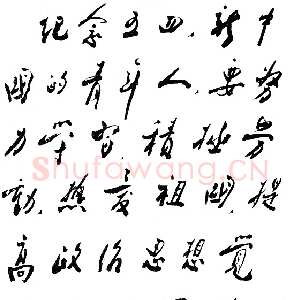 纪念五四,新中
國的青年人,要努
力学習,積極劳
動,热爱祖國,提
高政治思想觉
Shufawang.CN